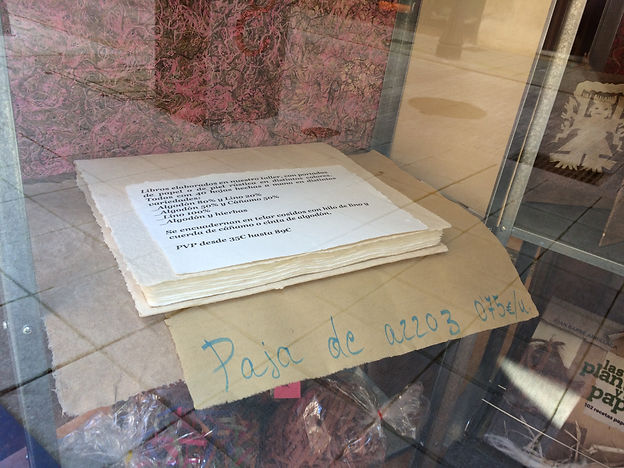 Libros elaborados en nuestro taller, con portadas
de papel o de piel rústica en distintos colores.
Todos con 40 hojas hechas a mano en distintas
variedades.
-Algodón 80% y Lino 20%
-Algodón 50% y Cáñamo 50%
-Lino 100%
-Algodón y hierbas
Se encuadernan en telar cosidos con hilo de lino y
cuerda de cáñamo o cinta de algodón.
PVP desde 35€ hasta 89€
Paja de arroz 0'75€/u.
las
plan
y
pap